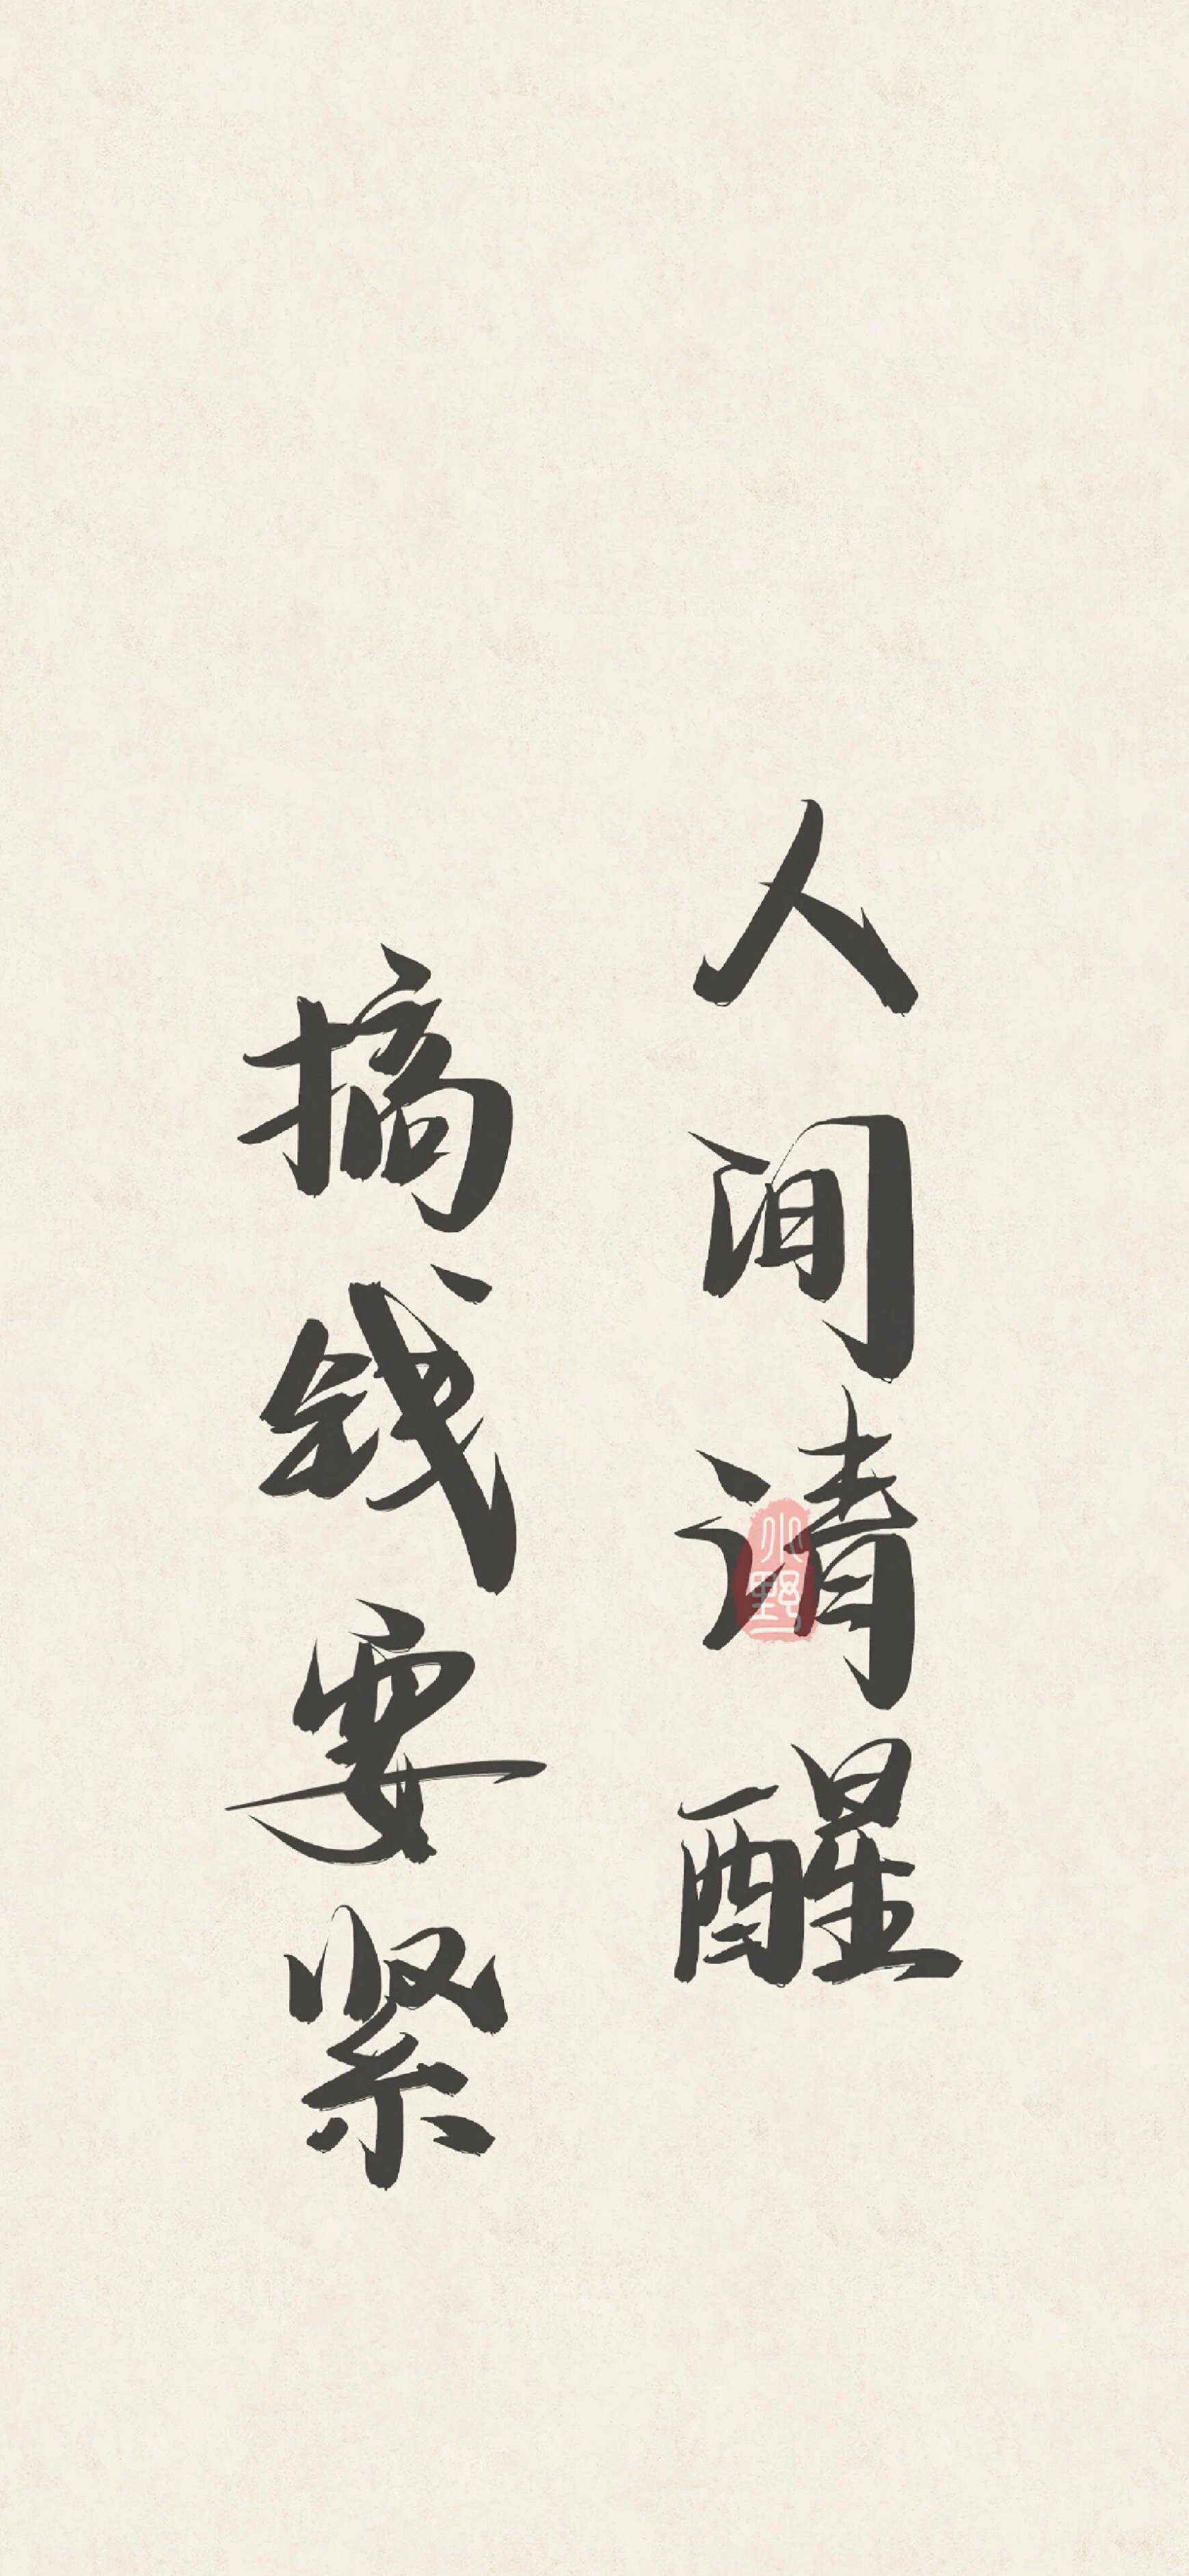 人间请醒
摘钱要紧
小野